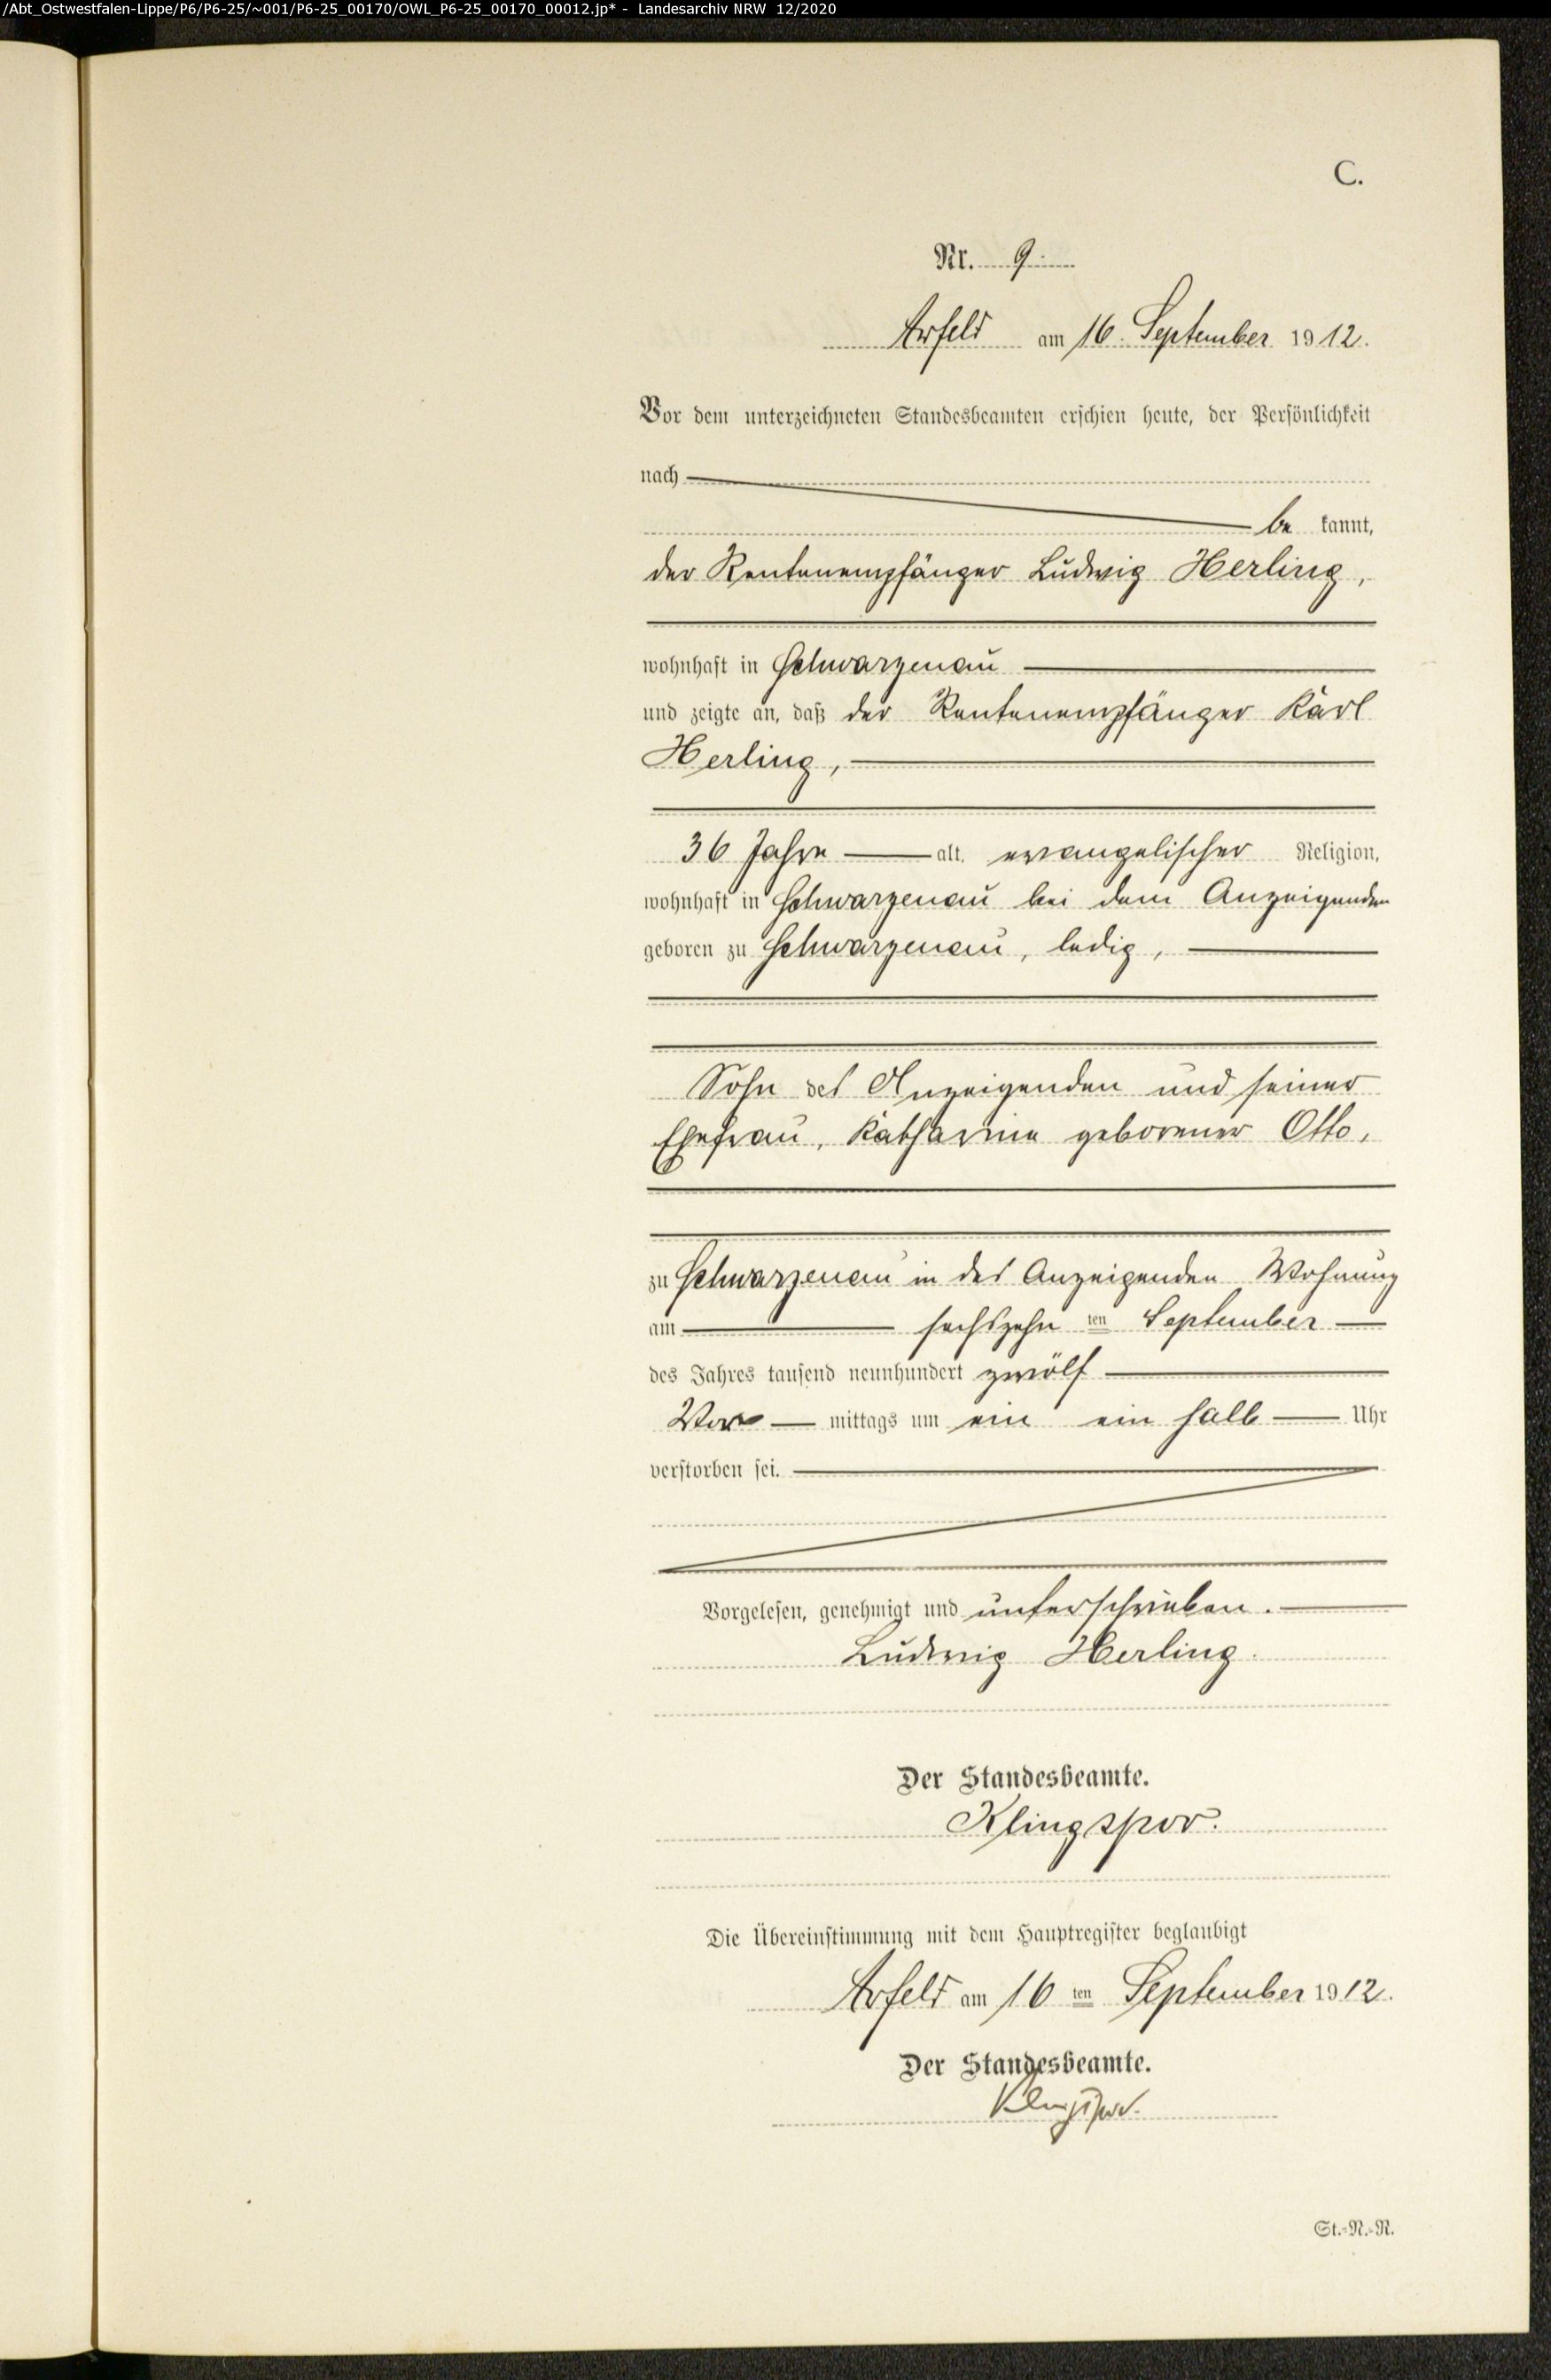 /Abt_Ostwestfalen-Lippe/P6/P6-25/~001/P6-25_00170/OWL_P6-25_00170_00012.jp* - Landesarchiv NRW 12/2020
C.
Nr. 9
Arfeld am 16. September 1912.
Vor dem unterzeichneten Standesbeamten erschien heute, der Persönlichkeit
nach
be kannt,
der Rentenempfänger Ludwig Herling,
wohnhaft in Schwarzenau
und zeigte an, daß der Rentenempfänger Karl
Herling,
36 Jahre alt, evangelischer Religion,
wohnhaft in Schwarzenau bei dem Anzeigenden
geboren zu Schwarzenau, ledig,
Sohn des Anzeigenden und seiner
Ehefrau, Katharine geborener Otto,
zu Schwarzenau in des Anzeigenden Wohnung
am sechszehn ten September
des Jahres tausend neunhundert zwölf
Vor mittags um ein ein halb Uhr
verstorben sei.
Vorgelesen, genehmigt und unterschrieben.
Ludwig Herling.
Der Standesbeamte.
Klingspor.
Die Übereinstimmung mit dem Hauptregister beglaubigt
Arfeld am 16 ten September 1912.
Der Standesbeamte.
Klingspor.
St.-N.-R.